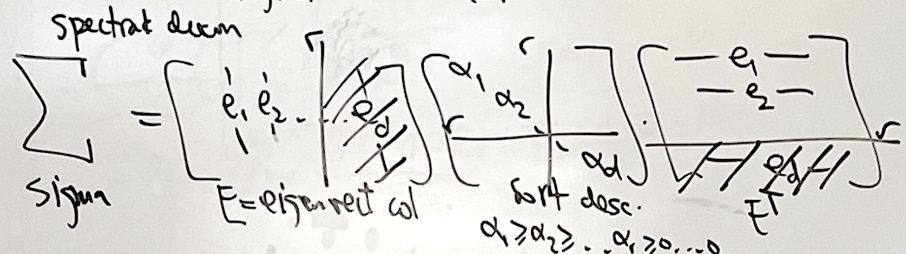 spectral decom
Σ = [ e₁ e₂ .. | r e_d ] [ α₁ α₂ α_d | r r ] · [ — e₁ — — e₂ — e_d r ]
sigma E = eigenvect col sort desc. Eᵀ
α₁ ≥ α₂ ≥ .. α₁ ≥ 0....0